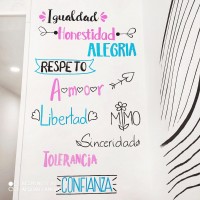 Igualdad
Honestidad
ALEGRIA
RESPETO
Amoor
Libertad
MIMO
Sinceridad
TOLERANCIA
CONFIANZA